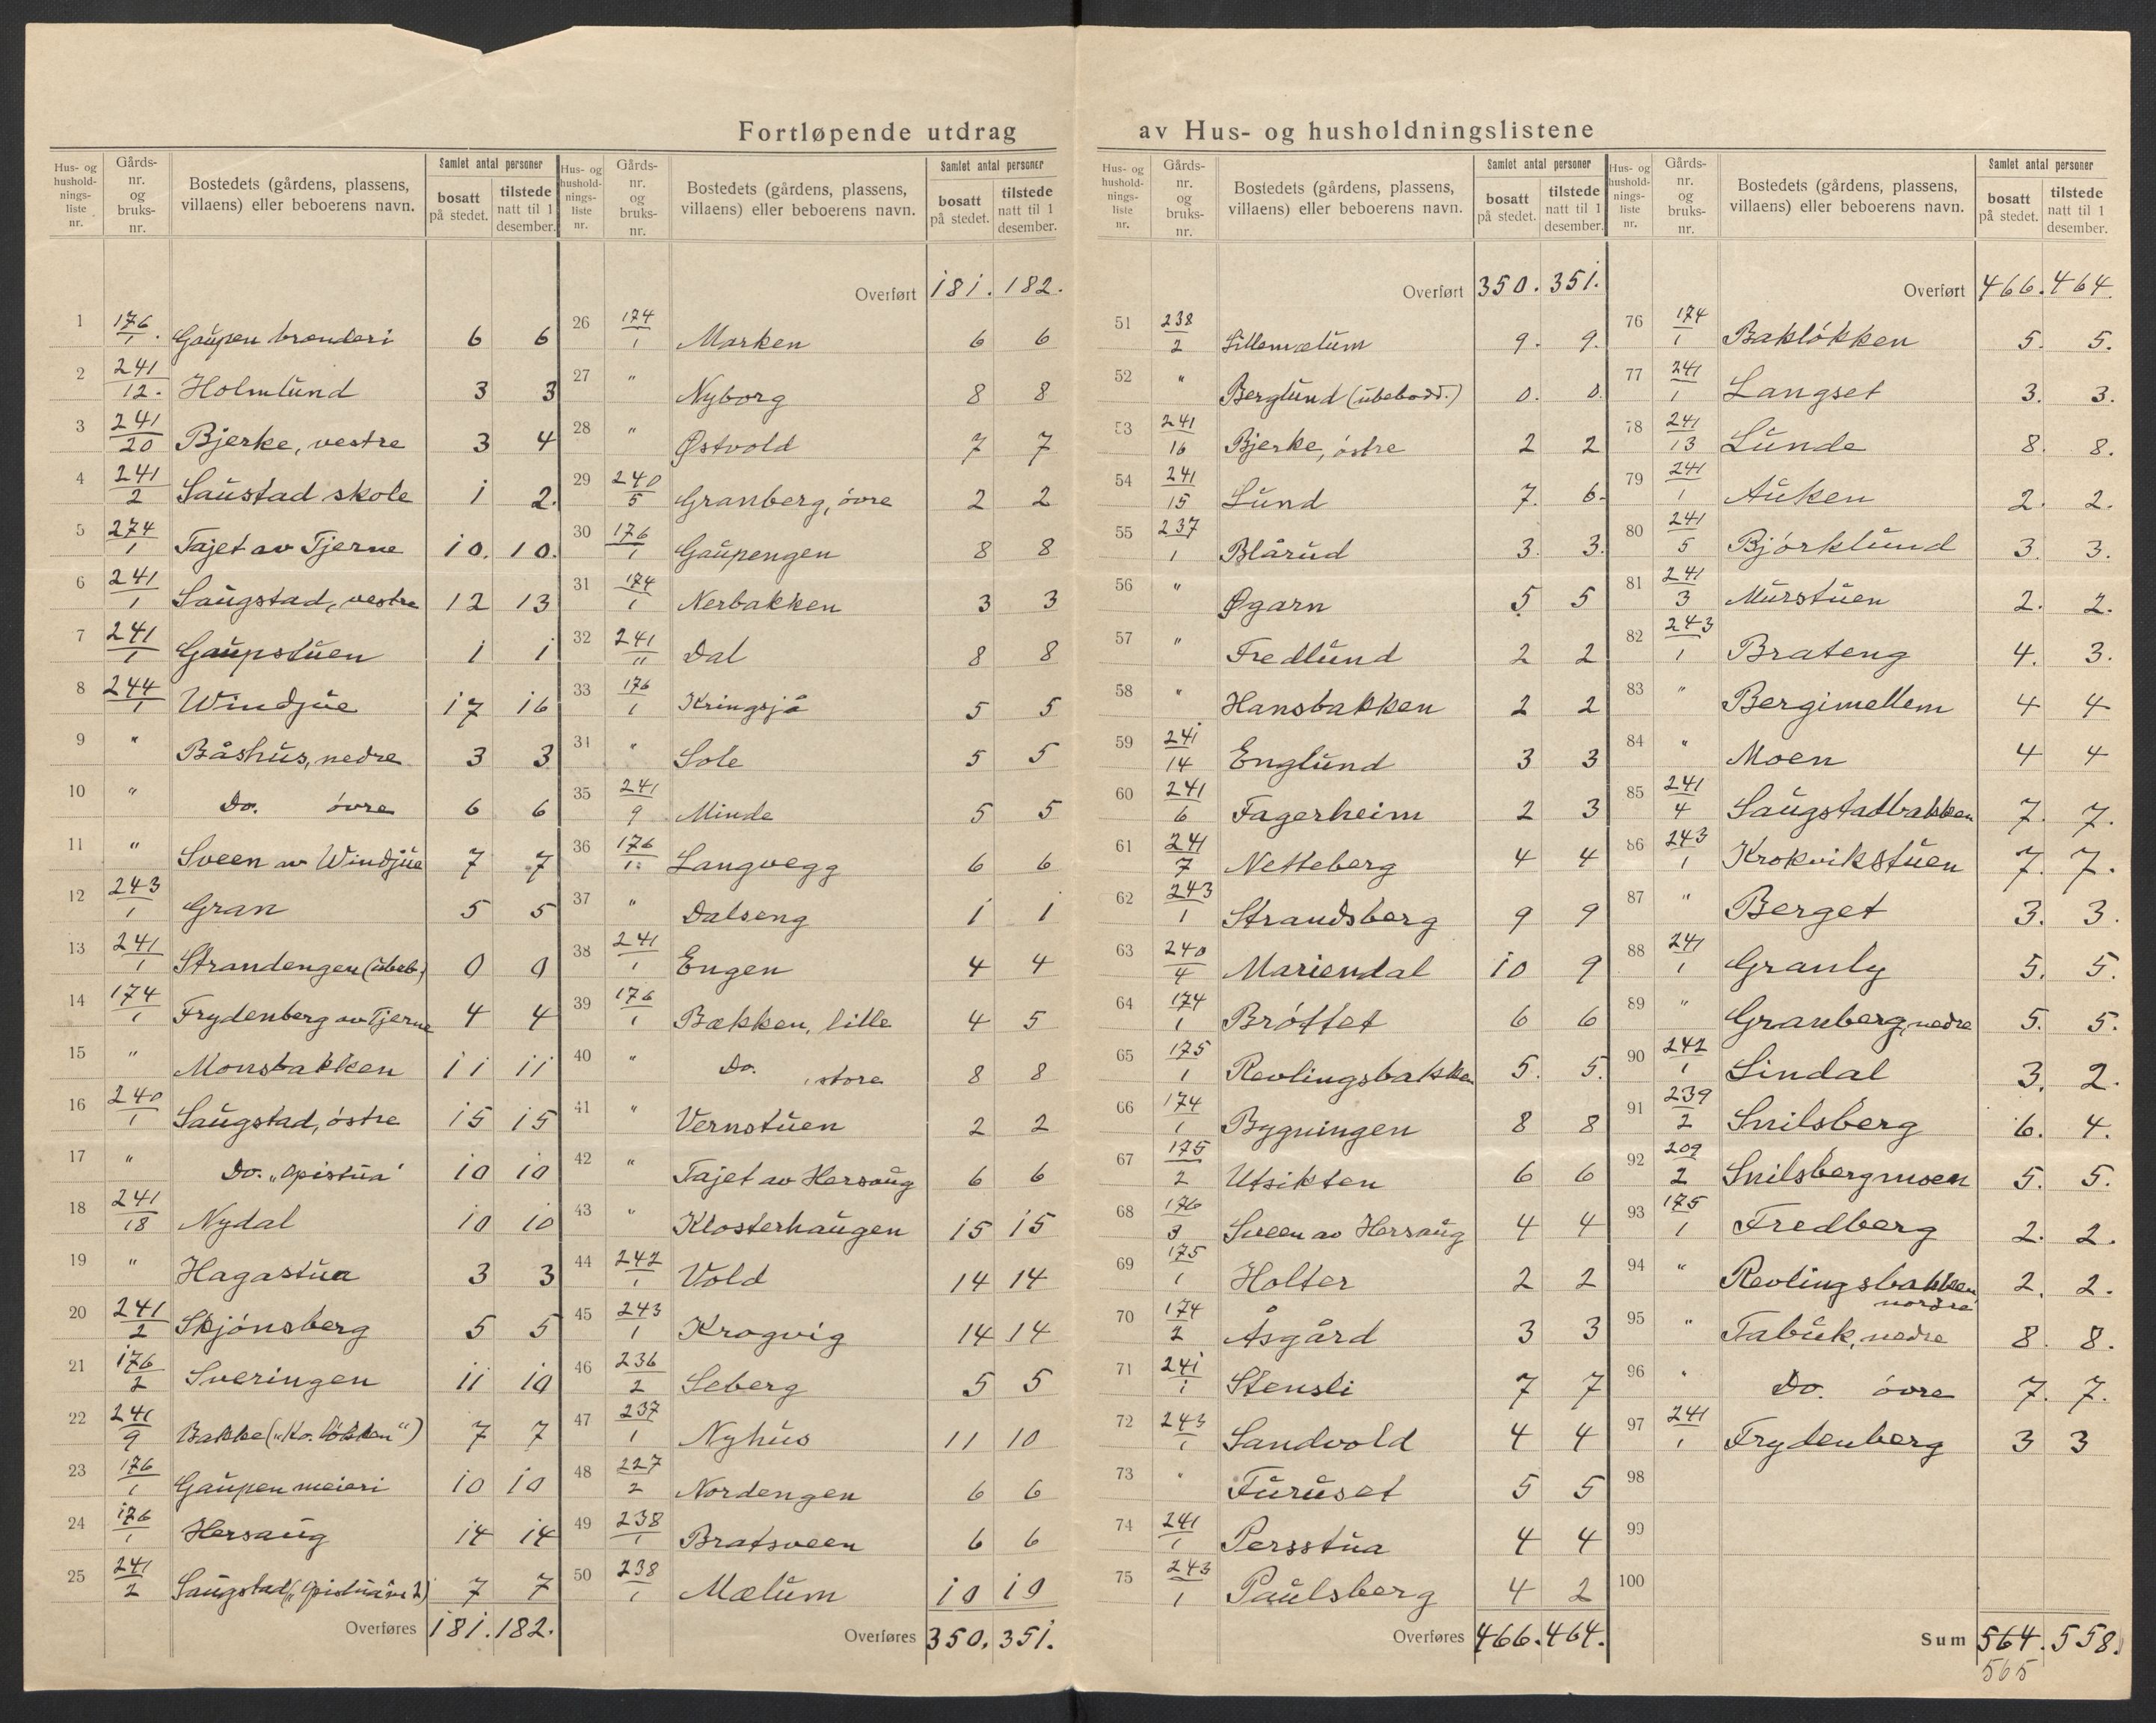 Fortløpende utdrag av Hus- og husholdningslistene
Hus- og husholdnings-liste nr. | Gårds-nr. og bruks-nr. | Bostedets (gårdens, plassens, villaens) eller beboerens navn. | Samlet antal personer bosatt på stedet. | tilstede natt til 1 desember.
1 176/1. Gaupen brenderi 6 6
2 241/12. Holmlund 3 3
3 241/20 Bjerke, vestre 3 4
4 241/2 Saustad skole 1 2.
5 274/1 Tajet av Tjerne 10. 10.
6 241/1 Saugstad, vestre 12 13
7 241/1 Gaupstuen 1 1
8 244/1 Windjue 17 16
9 " Båshus, nedre 3 3
10 " Do. övre 6 6
11 " Sveen av Windjue 7 7
12 243/1 Gran 5 5
13 241/1 Strandengen (ubeb.) 0 0
14 174/1 Frydenberg av Tjerne 4 4
15 " Monsbakken 11 11
16 240/1 Saugstad, östre 15 15
17 " Do. „Opistua" 10 10
18 241/18 Nydal 10 10
19 " Hagastua 3 3
20 241/2 Skjönsberg 5 5
21 176/2 Sveringen 11 10
22 241/9 Bakke („Ko. lökken") 7 7
23 176/1 Gaupen meieri 10 10
24 176/1 Hersaug 14 14
25 241/2 Saugstad („Opistua" 2) 7 7
Overføres 181. 182.
Hus- og husholdnings-liste nr. | Gårds-nr. og bruks-nr. | Bostedets (gårdens, plassens, villaens) eller beboerens navn. | Samlet antal personer bosatt på stedet. | tilstede natt til 1 desember.
Overført 181. 182.
26 174/1 Marken 6 6
27 " Nyborg 8 8
28 " Østvold 7 7
29 240/5 Granberg, övre 2 2
30 176/1 Gaupengen 8 8
31 174/1 Nerbakken 3 3
32 241/11 Dal 8 8
33 176/1 Kringsjå 5 5
34 " Sole 5 5
35 241/9 Minde 5 5
36 176/1. Langvegg 6 6
37 " Dalseng 1 1
38 241/1 Engen 4 4
39 176/1 Bækken, lille 4 5
40 " Do. , store 8 8
41 " Vernstuen 2 2
42 " Tajet av Hersaug 6 6
43 " Klosterhaugen 15 15
44 242/1 Vold 14 14
45 243/1 Krogvig 14 14
46 236/2 Seberg 5 5
47 237/1 Nyhus 11 10
48 227/2 Nordengen 6 6
49 238/1 Bratsveen 6 6
50 238/1 Mælum 10 10
Overføres 350. 351.
Hus- og husholdnings-liste nr. | Gårds-nr. og bruks-nr. | Bostedets (gårdens, plassens, villaens) eller beboerens navn. | Samlet antal personer bosatt på stedet. | tilstede natt til 1 desember.
Overført 350. 351.
51 238/2 Lillemælum 9. 9.
52 " Berglund (ubebodd.) 0. 0.
53 241/16 Bjerke, östre 2 2
54 241/15 Lund 7. 6.
55 237/1 Blårud 3. 3.
56 " Øgarn 5 5
57 " Fredlund 2 2
58 " Hansbakken 2 2
59 241/14 Englund 3 3
60 241/6 Fagerheim 2 3
61 241/7 Netteberg 4 4
62 243/1 Strandsberg 9 9
63 240/4 Mariendal 10 9
64 174/1 Bröttet 6 6
65 175/1 Revlingsbakken 5. 5.
66 174/1 Bygningen 8 8
67 175/2 Utsikten 6 6
68 176/3 Sveen av Hersaug 4 4
69 175/1 Holter 2 2
70 174/2 Åsgård 3 3
71 241/1 Stensli 7 7
72 243/1 Sandvold 4 4
73 " Furuset 5 5
74 241/1 Persstua 4 4
75 243/1 Paulsberg 4 2
Overføres 466. 464.
Hus- og husholdnings-liste nr. | Gårds-nr. og bruks-nr. | Bostedets (gårdens, plassens, villaens) eller beboerens navn. | Samlet antal personer bosatt på stedet. | tilstede natt til 1 desember.
Overført 466. 464.
76 174/1 Baklökken 5. 5.
77 241/1 Langset 3. 3.
78 241/13 Lunde 8. 8.
79 241/1 Auken 2. 2.
80 241/5 Björklund 3. 3.
81 241/3 Murstuen 2. 2.
82 243/1 Brateng 4. 3.
83 " Bergimellem 4 4
84 " Moen 4 4
85 241/4 Saugstadbakken 7. 7.
86 243/1 Krokvikstuen 7. 7.
87 " Berget 3. 3.
88 241/1 Granly 5. 5.
89 " Granberg, nedre 5. 5.
90 242/1 Lindal 3. 2.
91 239/2 Snilsberg 6. 4.
92 209/2 Snilsbergmoen 5. 5.
93 175/1 Fredberg 2. 2.
94 " Revlingsbakken nordre 2. 2.
95 " Tabuk, nedre 8. 8.
96 " Do. övre 7. 7.
97 241/1 Frydenberg 3 3
98
99
100
Sum 564. 558.
565